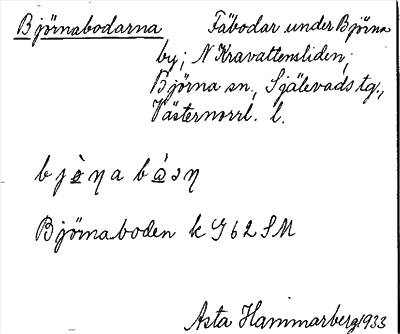 Björnabodarna Fäbodar under Björna
by; N Kravattensliden;
Björna sn, Själevads tg.,
Västernorrl. l.
Björnaboden k G 62 SM
Asta Hammarberg 1933